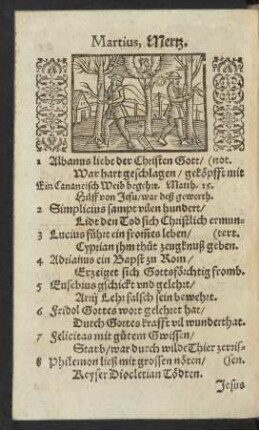 Martius, Mertz.
1 Albanus liebt der Christen Gott/ (not.
War hart geschlagen/ geköpfft mit
Ein Cananeisch Weib begehrt. Matth. 15.
Hülff von Jesu/ war deß gewerth.
2 Simplicius sampt vilen hundert/
Lidt den Tod sich Christlich ermun-
3 Lucius führt ein from̃es leben/ (tert.
Cyprian jhm thůt zeugknuß geben.
4 Adrianus ein Bapst zu Rom/
Erzeiget sich Gottsförchtig fromb.
5 Eusebius gschickt vnd gelehrt/
Arrij Lehr falsch sein bewehrt.
6 Fridol Gottes wort gelehret hat/
Durch Gottes krafft vil wunderthat.
7 Felicitas mit gůtem Gwissen/
Starb/ war durch wilde Thier zerris-
8 Philemon ließ mit grossen nöten/ (sen.
Keyser Diocletian Tödten.
Jesus